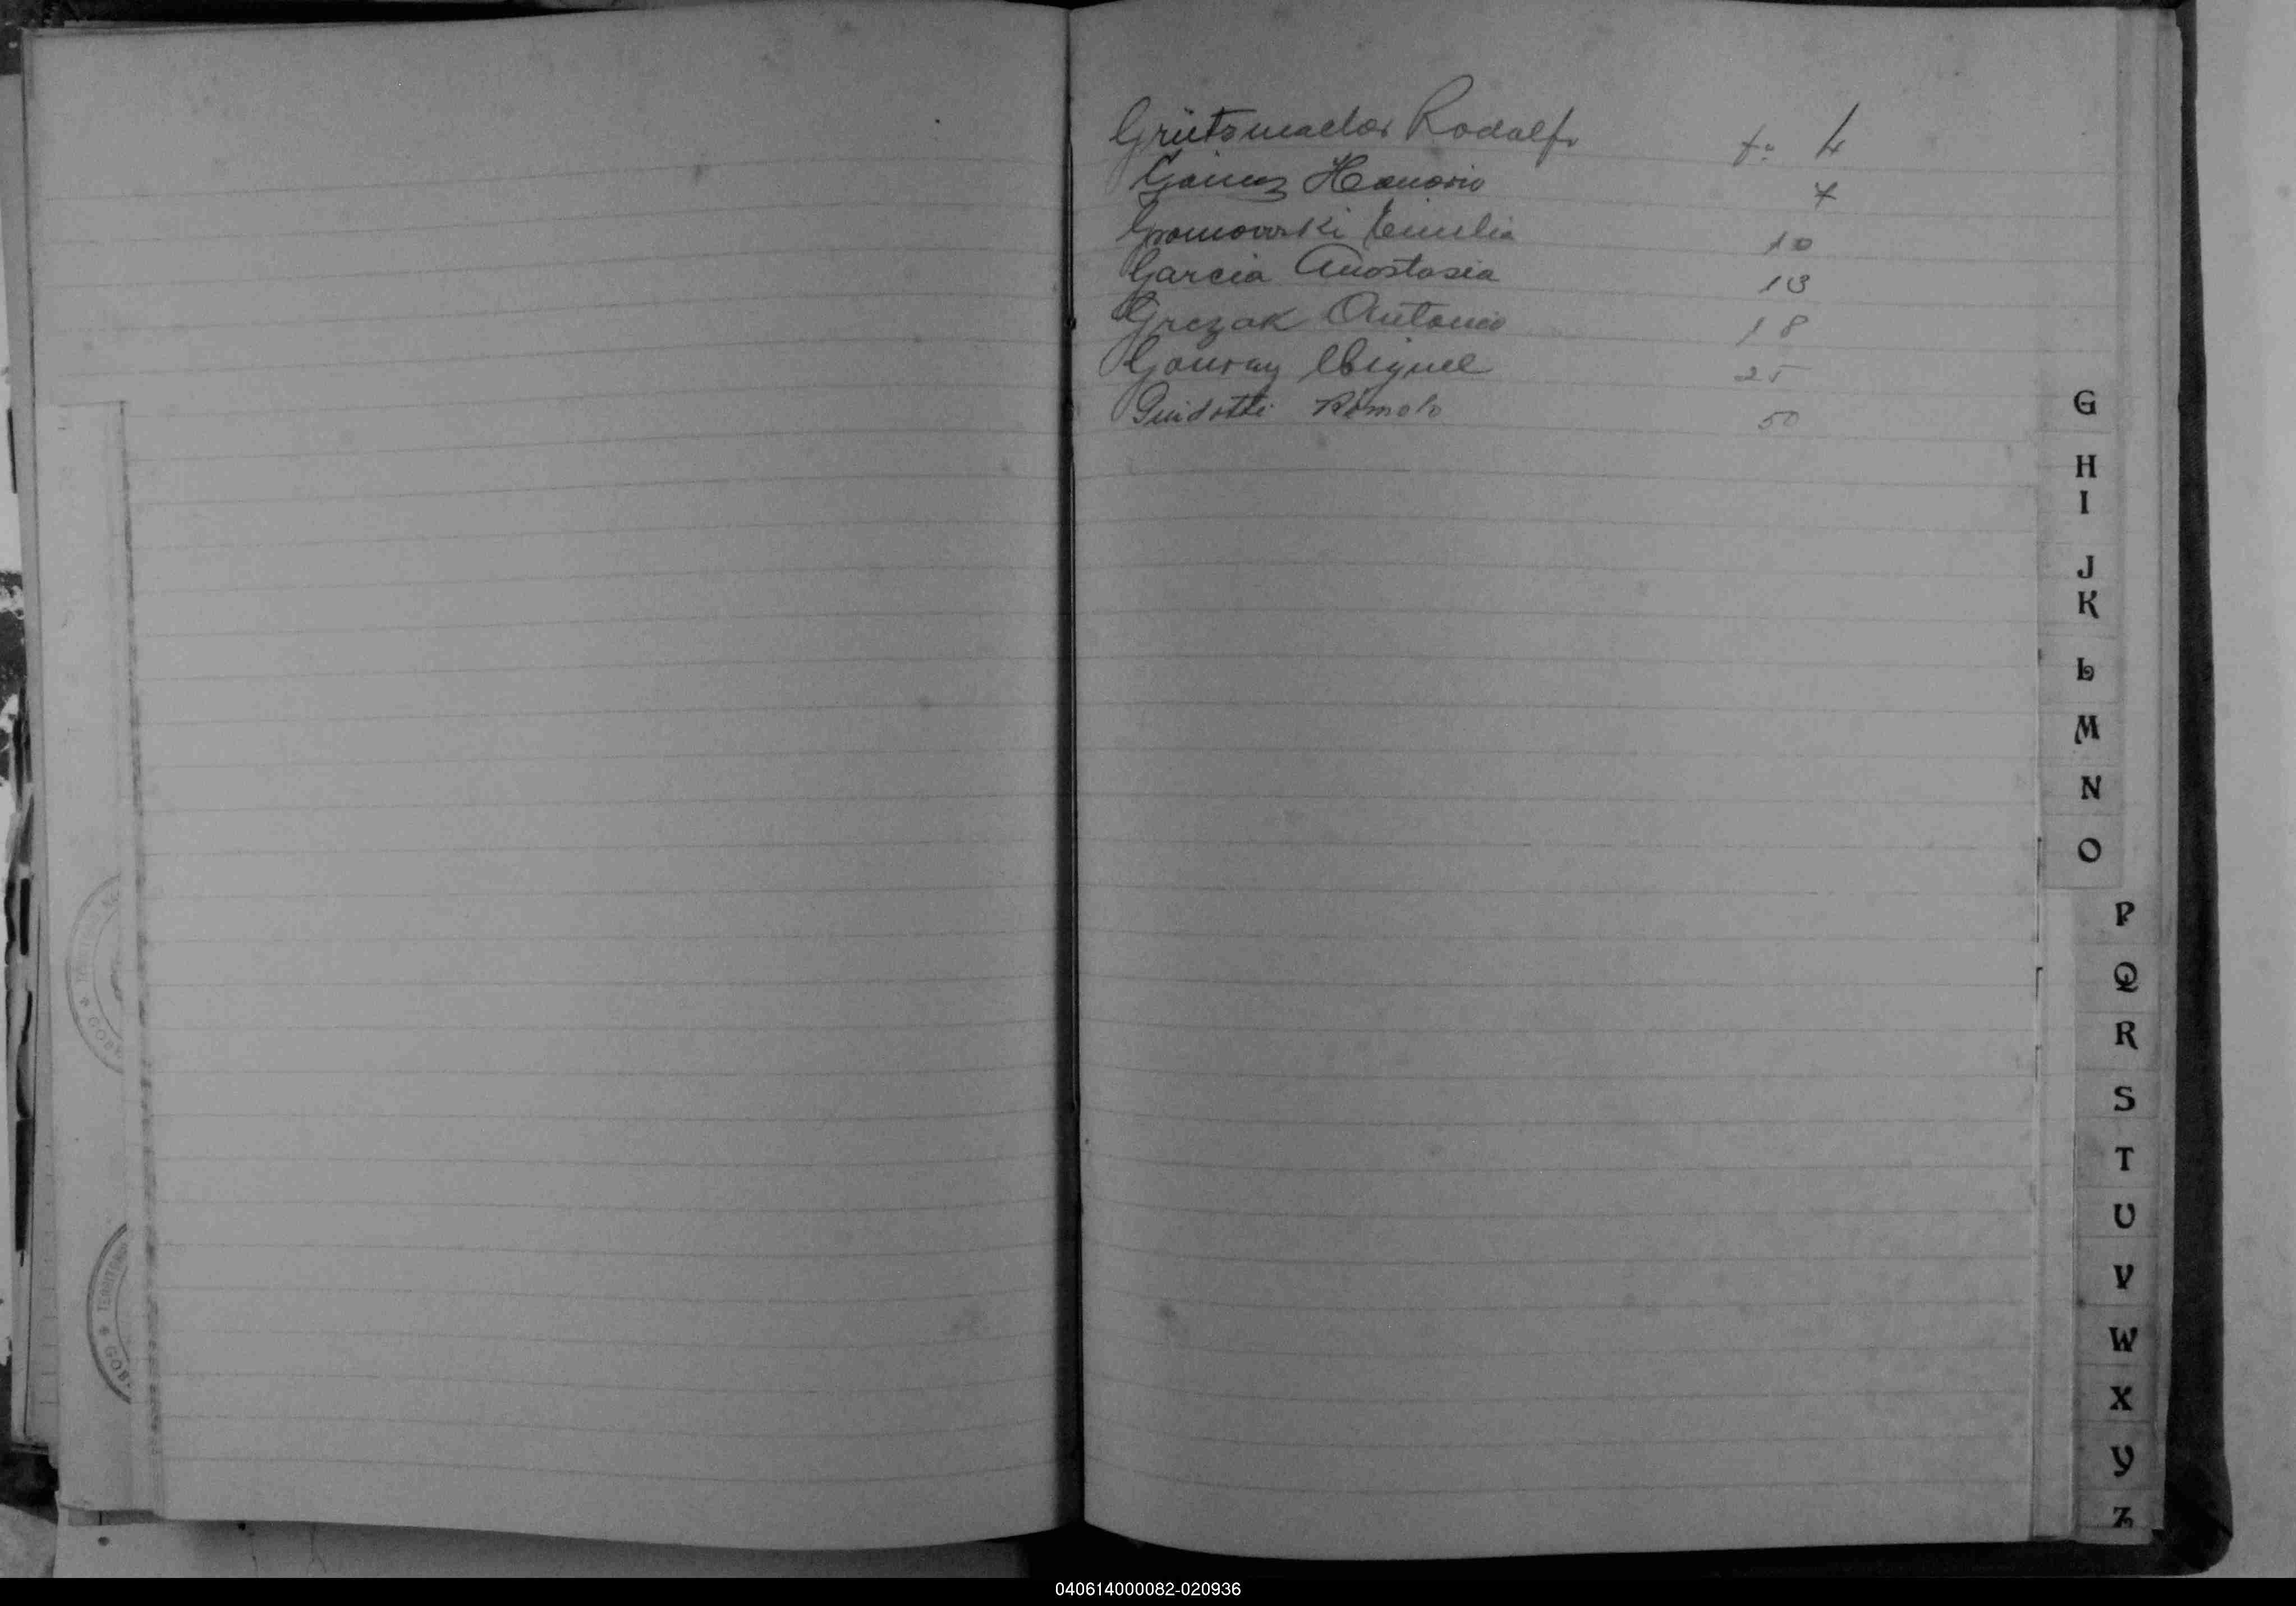 Grütsmacher Rodolfo fo 4
Gómez Honorio 7
Gromowski Emilia 10
Garcia Anastasia 13
Grezak Antonio 18
Gouvay Miguel 25
Guidotti Rómolo 50
G
H
I
J
K
L
M
N
O
P
Q
R
S
T
U
V
W
X
Y
Z
TERRITO
GOB
TERRITO
GOB
040614000082-020936